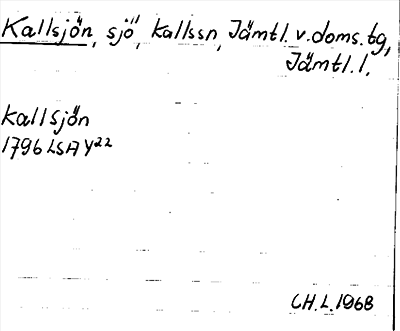 Kallsjön, sjö, Kallssn, Jämtl. v. doms. tg,
Jämtl. l.
Kallsjön
1796 LSA Y22
CH. L. 1968